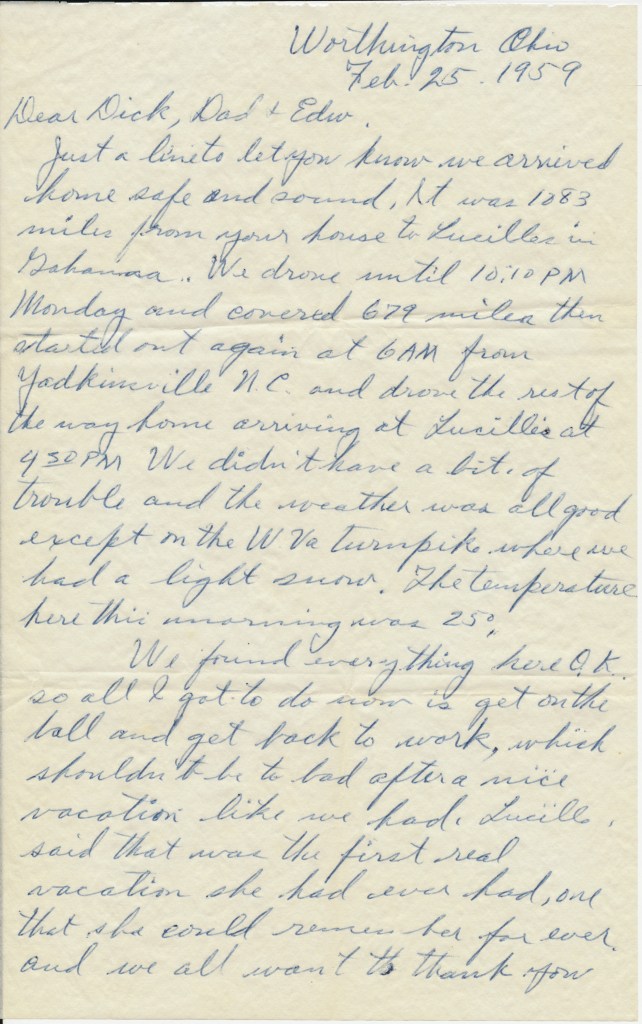 Worthington Ohio
Feb. 25. 1959
Dear Dick, Dad + Edw.
Just a line to let you know we arrived
home safe and sound. It was 1083
miles from your house to Lucilles in
Gahanna. We drove until 10:10 PM
Monday and covered 679 miles then
started out again at 6 AM from
Yadkinsville N.C. and drove the rest of
the way home arriving at Lucilles at
4 30 PM We didn't have a bit of
trouble and the weather was all good
except on the W Va turnpike where we
had a light snow. The temperature
here this morning was 25°.
We found everything here O.K.
so all I got to do now is get on the
ball and get back to work, which
shouldn't be to bad after a nice
vacation like we had. Lucille
said that was the first real
vacation she had ever had, one
that she could remember for ever.
and we all want to thank you